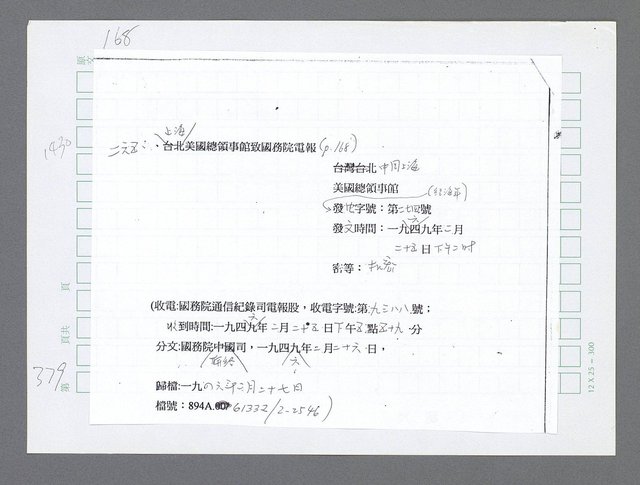 168
上海
二六五、台北美國總領事館致國務院電報 (p.168)
1430
台灣台北 中國上海
美國總領事館
發電字號：第二一四號
六
發文時間：一九四九年二月
二十五日下午二時
密等：機密
(收電:國務院通信紀錄司電報股，收電字號:第九三八八號；
六
收到時間:一九四九年二月二十五日下午五點五十九分
分文:國務院中國司，一九四九年二月二十六日，
六
頁
頁共
379
第
歸檔:一九四六年二月二十七日
檔號：894A.00 61332/2-2546)
12 X 25 = 300